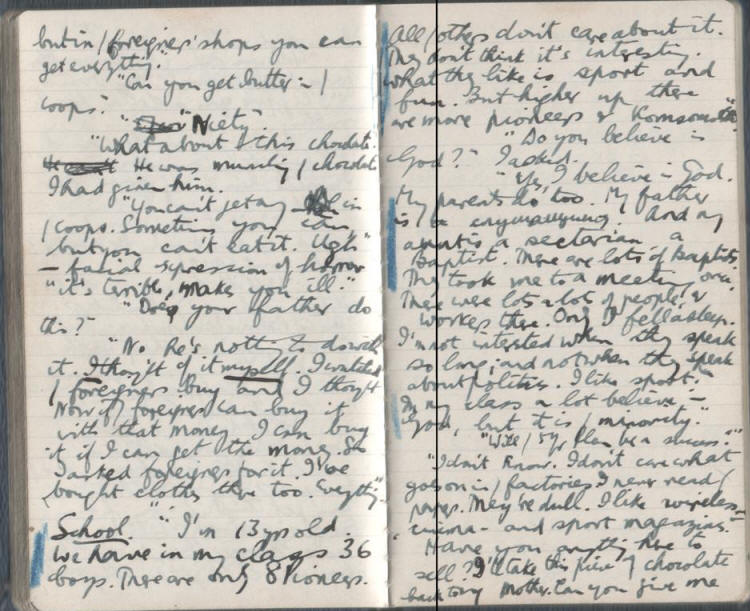 but in / foreigners' shops you can
get everything.
"Can you get butter in /
coops."
"Niety"
"What about / this chocolate.
He was munching / chocolate
I had given him.
"You can't get any in
/ coops. Something you can
but you can't eat it. Ugh"
– facial expression of horror
"it's terrible, makes you ill."
"Does your father do
this?"
"No he's nothing to do with
it. I thought of it myself. I watched
/ foreigners buy and I thought
Now if / foreigners can buy it
with that money I can buy
it if I can get the money. So
I asked foreigners for it. I've
bought clothes there too. Everything"
School "I'm 13 yrs old.
We have in my class 36
boys. There are only 8 Pioneers.
All / others don't care about it.
They don't think it's interesting.
what they like is sport and
fun. But higher up there
are more pioneers &
"Do you believe in
God?" I asked.
"Yes, I believe in God.
My parents do too. My father
is a And my
aunt is a sectarian a
Baptist. There are lots of Baptists
They took me to a meeting once.
There were lots a lot of people, &
workers there. Only I fell asleep.
I'm not interested when they speak
so long; and not when they speak
about politics. I like sport.
In my class a lot believe in
God, but it is / minority."
"Will / 5 yr Plan be a success."
"I don't know. I don't care what
goes on in / factories. I never read /
papers. They're dull. I like wireless –
cinema – and sport magazines.
Have you anything here to
sell? I'll take this piece of chocolate
back to my mother. Can you give me